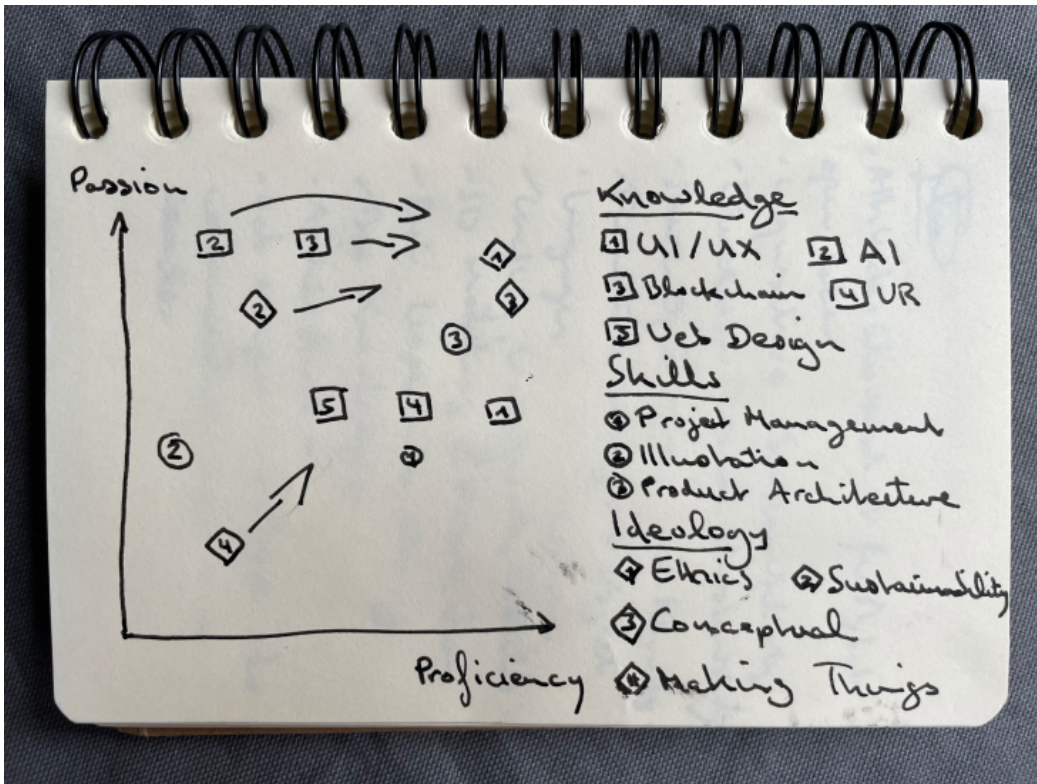 Passion
2 3 1
2 3
3
5 4 1
2 1
4
Proficiency
Knowledge
1 UI/UX 2 AI
3 Blockchain 4 VR
5 Web Design
Skills
1 Project Management
2 Illustration
3 Product Architecture
Ideology
1 Ethics 2 Sustainability
3 Conceptual
4 Making Things